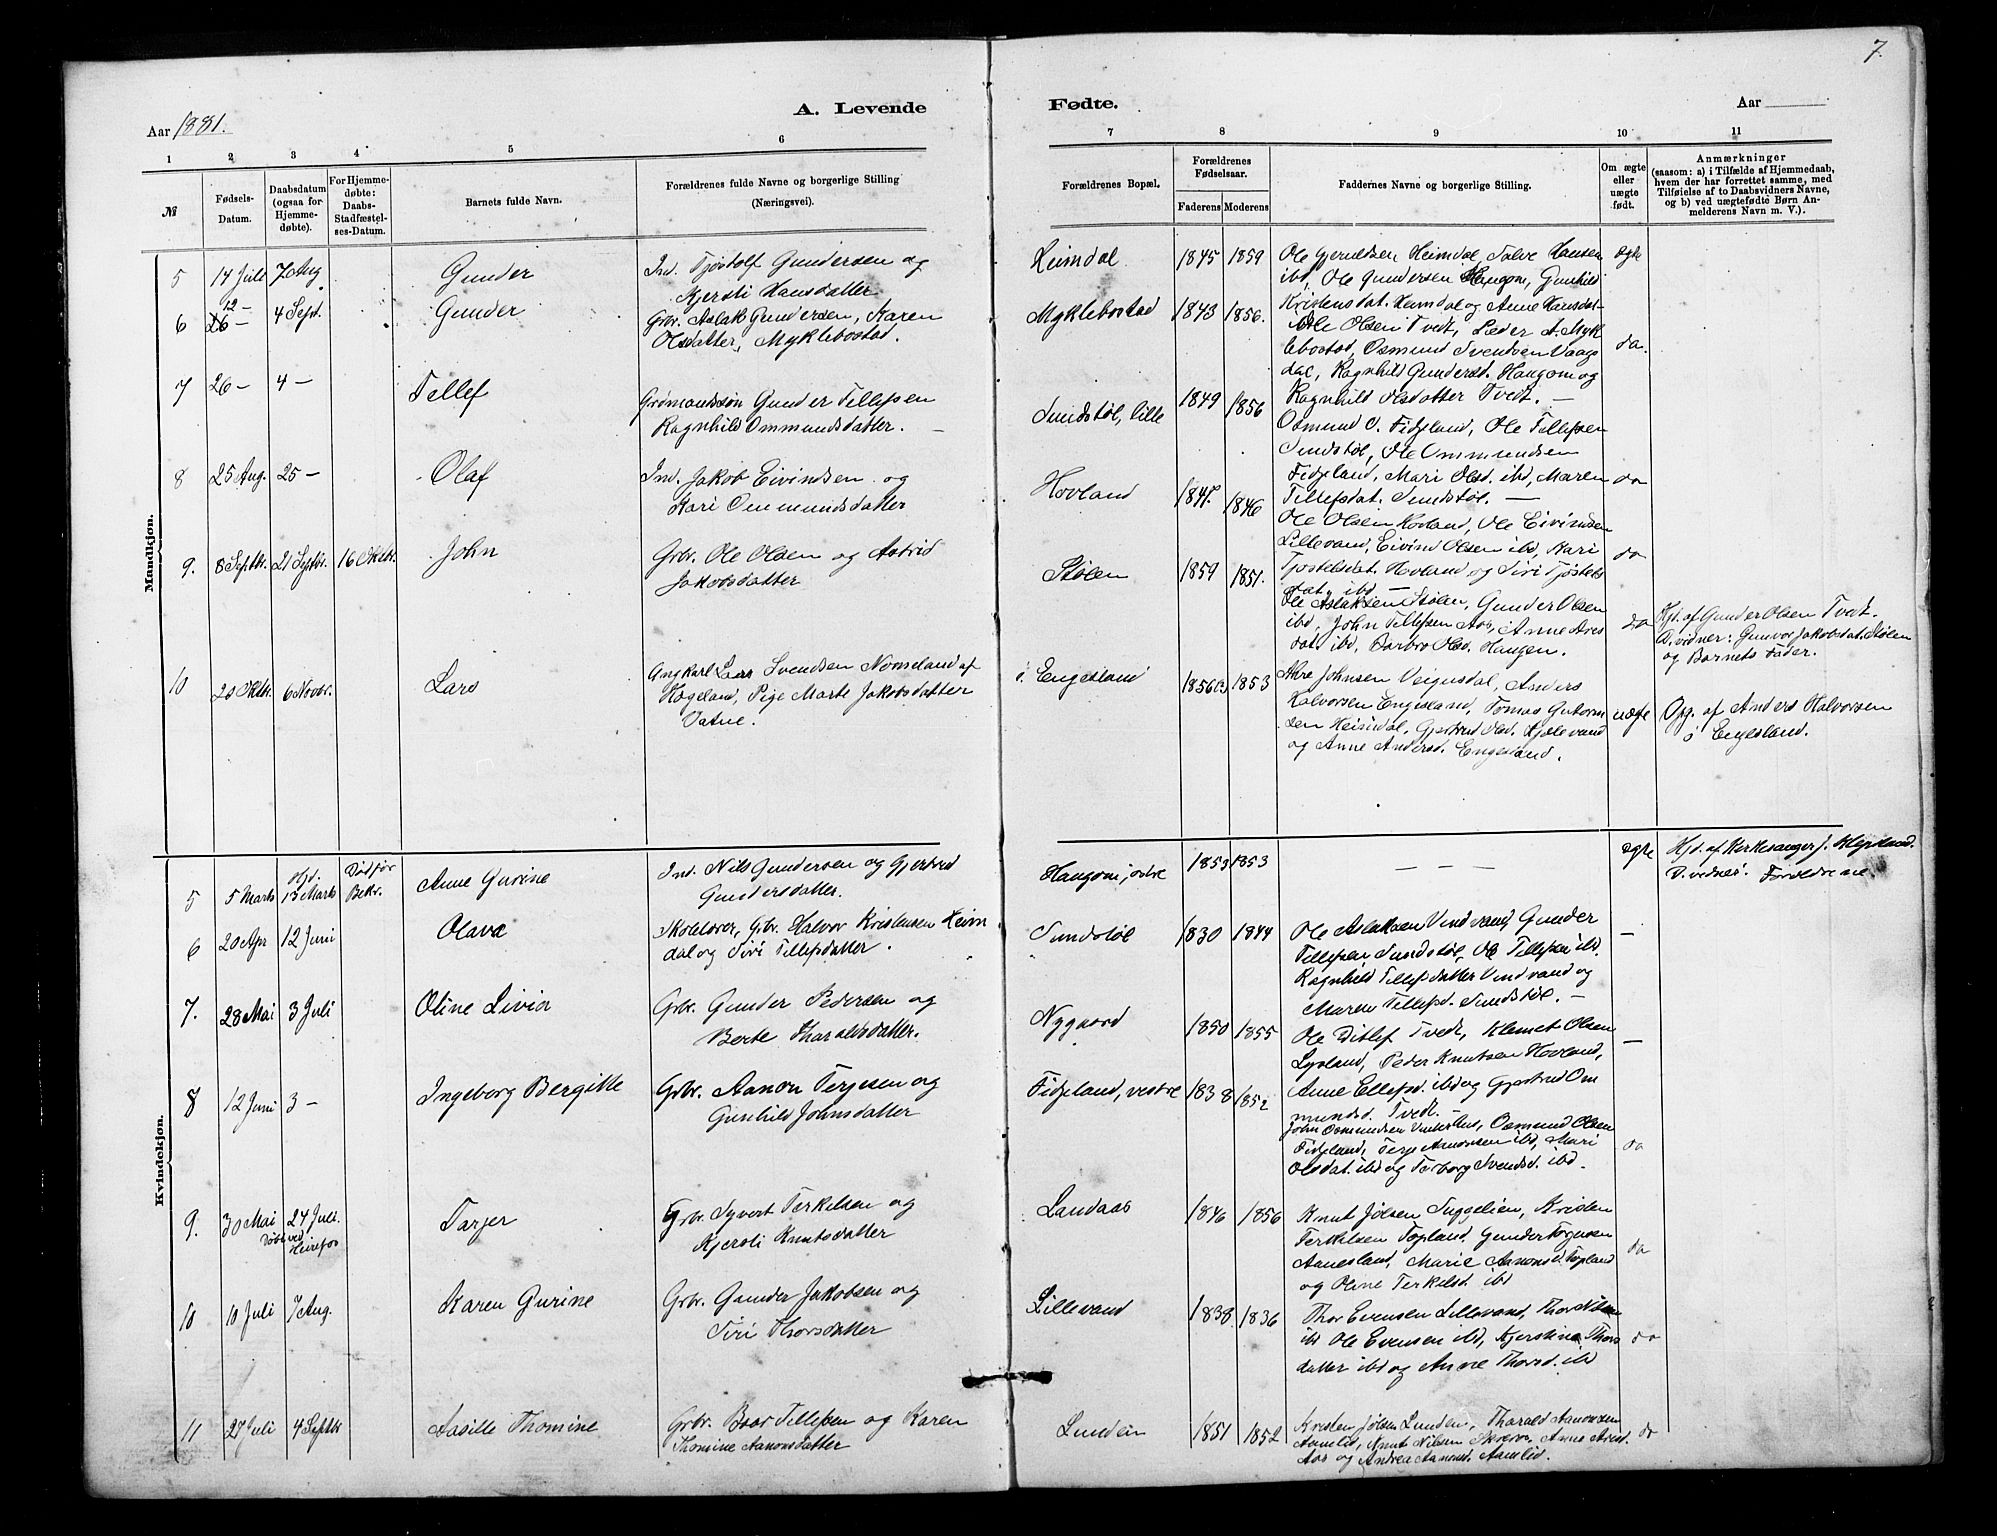 7.
A. Levende
Fødte.
Aar 1881.
Aar
1 2 3 4 5 6 7 8 9 10 11
№
Fødsels-
Datum.
Daabsdatum
(ogsaa for
Hjemme-
døbte).
For Hjemme-
døbte:
Daabs-
Stadfæstel-
ses-Datum.
Barnets fulde Navn.
Forældrenes fulde Navne og borgerlige Stilling
(Næringsvei).
Forældrenes Bopæl.
Forældrenes
Fødselsaar.
Faderens Moderens
Faddernes Navne og borgerlige Stilling.
Om ægte
eller
uægte
født.
Anmærkninger
(saasom: a) i Tilfælde af Hjemmedaab,
hvem der har forrettet samme, med
Tilføielse af to Daabsvidners Navne,
og b) ved uægtefødte Børn An-
melderens Navn m. V.).
Mandkjøn.
5 14 Juli 7 Aug. Gunder
Ind. Tjostolf Gundersen og
Kjersti Hansdatter
Heimdal 1845 1859
Ole Gjeruldsen Heimdal, Salve Hansen
ibd, Ole Gundersen Haugom, Gunhild
Kristensdat. Heimdal og Anne Hansdat-
ægte
6 12 26 — 4 Sept. Gunder
Grbr. Aslak Gundersen, Karen
Olsdatter, Myklebostad.
Myklebostad 1843 1856.
Ole Olsen Tvedt, Peder A. Myk
lebostad, Osmund Svendsen Vaags
dal, Ragnhild Gundersd. Haugom og
Ragnhild Olsdatter Tvedt. —
do.
7 26 — 4 — Tellef
Grømandssøn Gunder Tellefsen
Ragnhild Ommundsdatter. —
Sundstøl, lille 1849 1856
Osmund O. Fidjeland, Ole Tellefsen
Sundstøl, Ole Ommundsen
Fidjeland, Mari Olsd. ibd, Maren
Tellefsdat. Sundstøl. —
do
8 25 Aug. 25 — Olaf
Ind. Jakob Eivindsen og
Kari Ommundsdatter
Hovland 1847 1846
Ole Olsen Hovland, Ole Eivindsen
Lillevand, Eivind Olsen ibd, Kari
Tjostelsdat. Hovland og Siri Tjøstels
dat. ibd —
do
9. 8 Septbr. 21 Septbr. 16 Oktbr. John
Grbr. Ole Olsen og Astrid
Jakobsdatter
Stølen 1859 1851.
Ole Aslaksen Stølen, Gunder Olsen
ibd, John Tellefsen Aas, Anne Ares
dat. ibd, Barbro Olsd. Haugen.
do
Hjd. af Gunder Olsen Tvedt.
D. vidner: Gunvor Jakobsdat. Stølen
og Barnets Fader.
10 20 Oktbr. 6 Novbr. Lars
Ungkarl Lars Svendsen Nomeland af
Høgeland, Pige Marte Jakobsdatter
Vatne.
i Engesland 1853
Are Johnsen Veigusdal, Anders
Halvorsen Engesland, Tomas Gutorm
sen Heimdal, Gjertrud Olsd. Kjølevand
og Anne Andersd. Engesland.
uægte
Opg. af Anders Halvorsen
i Engesland.
Kvindekjøn.
5 5 Marts hjd. 13 Marts Død før Bekr. Anne Gurine
Ind. Nils Gundersen og Gjertrud
Gundersdatter.
Haugom, østre 1853 1853
— — —
ægte
Hjd. af Kirkesanger J. Klepsland.
D. vidner: Forældrene.
6 20 Apr 12 Juni Olava
Skolelærer, Grbr. Halvor Kristensen Heim
dal og Siri Tellefsdatter.
Sundstøl 1830 1844
Ole Aslaksen Vindvand, Gunder
Tellefsen Sundstøl, Ole Tellefsen ibd.
Ragnhild Tellefsdatter Vindvand og
Maren Tellefsd. Sundstøl. —
—
7. 28 Mai 3 Juli Oline Livia
Grbr. Gunder Pedersen og
Berte Tharaldsdatter.
Nygaard 1850 1855
Ole Ditlef Tvedt, Klemet Olsen
Lysland, Peder Knutsen Hovland,
Anne Ellefsd. ibd og Gjertrud Om
mundsd. Tvedt.
—
8 12 Juni 3 — Ingeborg Bergitte
Grbr. Aanon Terjesen og
Gunhild Johnsdatter
Fidjeland, vestre 1838 1852
John Osmundsen, Osmund Olsen
Fidjeland, Terje Aanonsen ibd, Mari
Olsdat. ibd og Torborg Svendsd. ibd.
do
9. 30 Mai 24 Juli. Døbt ved Heirefos Tarjer
Grbr. Syvert Terkelsen og
Kjersti Knutsdatter
Landaas 1846 1856
Knut Jølsen Tuggelien, Kristen
Terkelsen Topland, Gunder Torgusen
Aanesland, Marie Aanonsd. Topland
og Oline Terkelsd. ibd
do
10 10 Juli 7 Aug. Karen Gurine
Grbr. Gunder Jakobsen og
Siri Thorsdatter
Lillevand 1838 1836
Thor Evensen Lillevand, Thor Nilsen
ibd Ole Evensen ibd, Kjerstine Thors
datter ibd og Anne Thorsd. ibd
do
11 27 Juli 4 Septbr Aasille Thomine
Grbr. Boar Tellefsen og Karen
Thomine Aanonsdatter
Lundein 1851 1852
Kristen Jølsen Lunden, Tharald Aanonsen
Aamlid, Knut Nilsen Skreros, Anne Aresd.
Aas og Andrea Aanonsd. Aamlid.
do